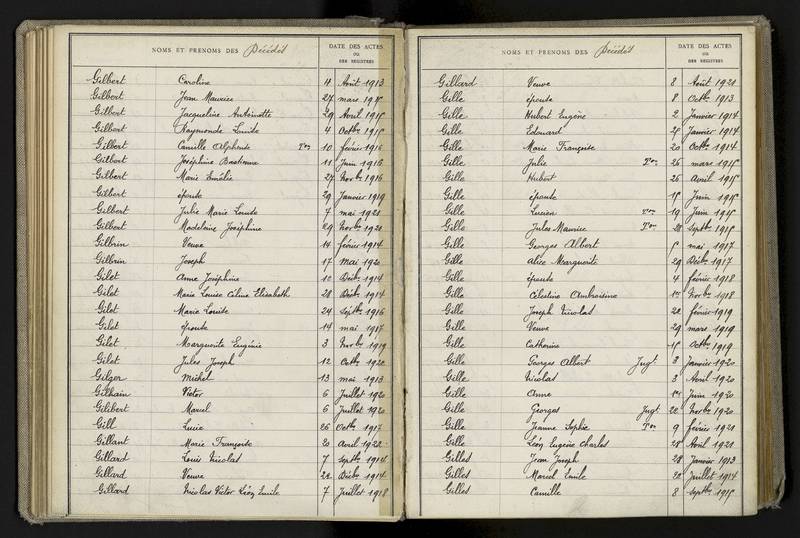 NOMS ET PRENOMS DES Décédés
DATE DES ACTES
OU
DES REGISTRES
Gilbert Caroline 4 Août 1913
Gilbert Jean Maurice 27 mars 1915
Gilbert Jacqueline Antoinette 29 Avril 1915
Gilbert Raymonde Louise 4 Octbre 1915
Gilbert Camille Alphonse Ton 10 février 1916
Gilbert Joséphine Bastienne 11 Juin 1916
Gilbert Marie Emélie 27 Novbre 1916
Gilbert épouse 29 Janvier 1919
Gilbert Julie Marie Louise 7 mai 1921
Gilbert Madeleine Joséphine 29 Novbre 1921
Gilbrin Veuve 14 février 1914
Gilbrin Joseph 17 Mai 1920
Gilet Anne Joséphine 10 Décbre 1914
Gilet Marie Louise Céline Elisabeth 28 Décbre 1914
Gilet Marie Louise 24 Septbre 1916
Gilet épouse 14 mai 1917
Gilet Marguerite Eugénie 3 Novbre 1919
Gilet Jules Joseph 12 Octbre 1920
Gilger Michel 13 mai 1913
Gilhain Victor 6 Juillet 1920
Gilibert Marcel 6 Juillet 1920
Gill Lucie 26 Octbre 1917
Gillant Marie Françoise 20 Avril 1922
Gillard Louis Nicolas 7 Septbre 1914
Gillard Veuve 22 Décbre 1914
Gillard Nicolas Victor Léon Emile 7 Juillet 1918
NOMS ET PRENOMS DES Décédés
DATE DES ACTES
OU
DES REGISTRES
Gillard Veuve 8 Août 1921
Gille épouse 8 Octbre 1913
Gille Hubert Eugène 2 Janvier 1914
Gille Edouard 25 Janvier 1914
Gille Marie Françoise 20 Octbre 1914
Gille Julie Ton 26 mars 1915
Gille Hubert 26 Avril 1915
Gille épouse 15 Juin 1915
Gille Lucien Ton 19 Juin 1915
Gille Jules Maurice Ton 28 Septbre 1915
Gille Georges Albert 5 mai 1917
Gille Alice Marguerite 29 Décbre 1917
Gille épouse 4 février 1918
Gille Célestine Ambroisine 1er Novbre 1918
Gille Joseph Nicolas 22 février 1919
Gille Veuve 29 mars 1919
Gille Catherine 15 Octbre 1919
Gille Georges Albert Jugt 3 Janvier 1920
Gille Nicolas 8 Avril 1920
Gille Anne 1er Juin 1920
Gille Georges Jugt 22 Novbre 1920
Gille Jeanne Sophie Ton 9 février 1921
Gille Léon Eugène Charles 28 Avril 1921
Gilles Jean Joseph 28 Janvier 1913
Gilles Marcel Emile 22 Juillet 1914
Gilles Camille 8 Septbre 1915